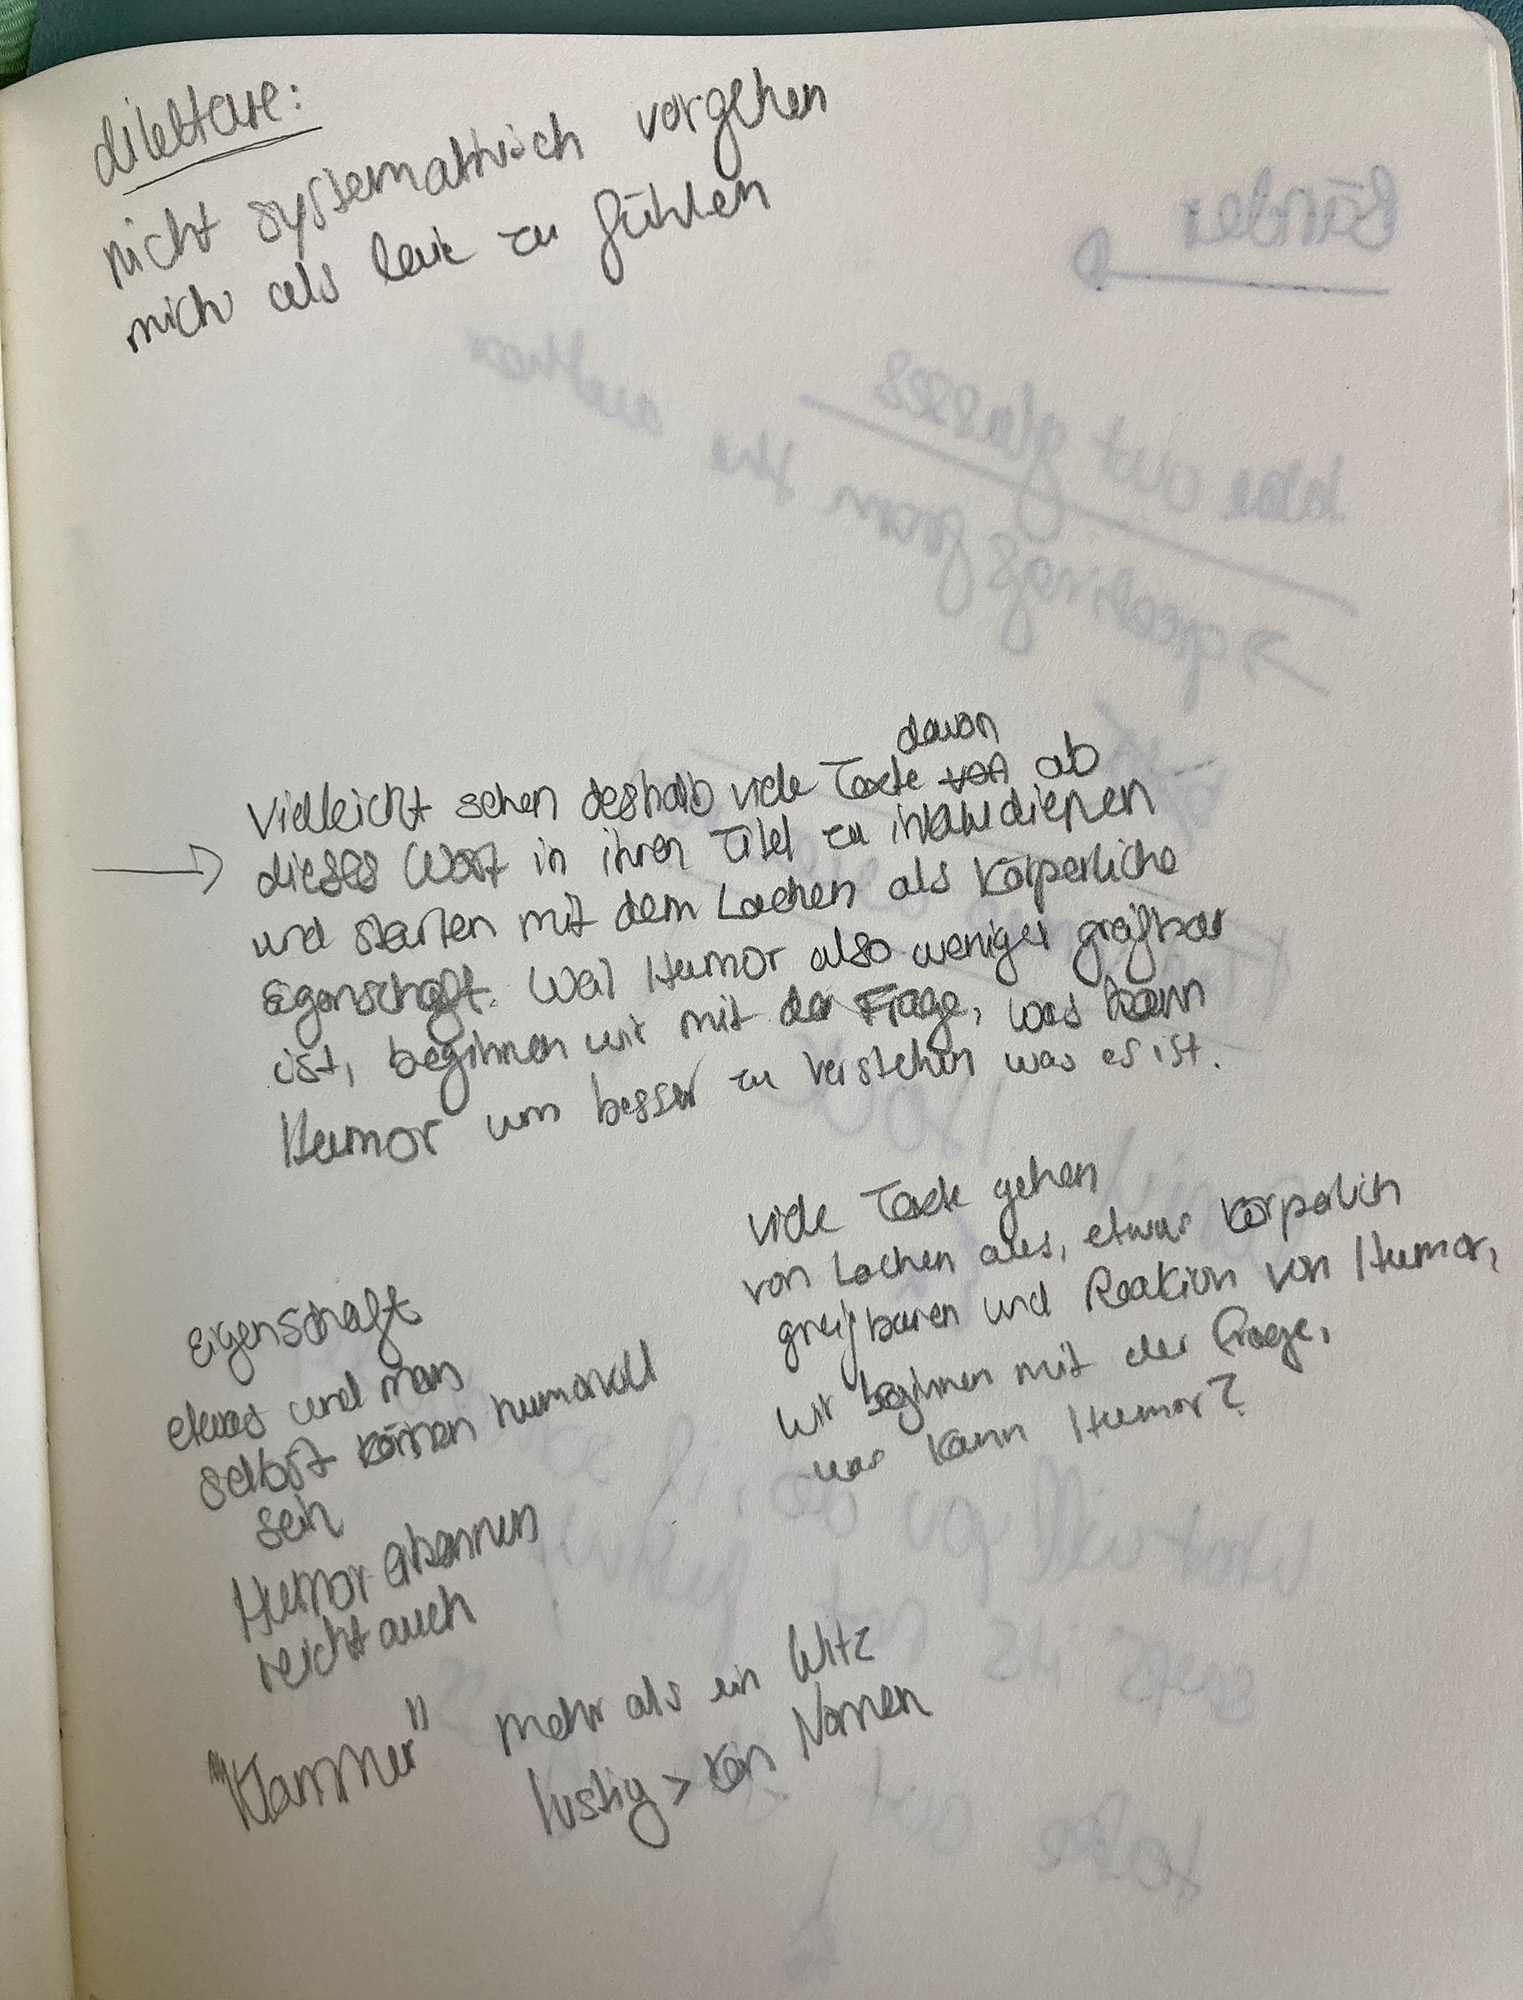 diletare:
nicht systematisch vorgehen
mich als laie zu fühlen
davon
Vielleicht sehen deshalb viele Texte von ab
dieses Wort in ihren Titel zu
und starten mit dem Lachen als körperliche
Eigenschaft. Weil Humor also weniger greifbar
ist, beginnen wir mit der Frage, was kann
Humor um besser zu verstehen was es ist.
viele Texte gehen
von Lachen aus, etwas körperlich
greifbaren und Reaktion von Humor,
wir beginnen mit der Frage,
was kann Humor?
Eigenschaft
etwas und man
selbst können humorvoll
sein
Humor erkennen
reicht auch
"Klammer"
mehr als ein Witz
lustig > kein Nomen
Bänder
take out glasses
→ greetings from the author
what will you do, if
take out